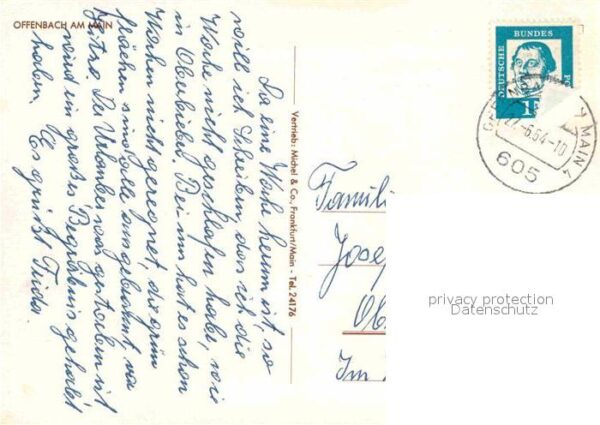 OFFENBACH AM MAIN
Da eine Woche herum ist, so
will ich schreiben, das ich die
Woche nicht geschlafen habe, wie
in Oberbieber. Bei uns hat es schon
Wochen nicht geregnet, die grün
flächen sind alle ausgebrannt, von
Hitze. Der Urlauber ist
wird ein großes Begräbnis gehabt
haben. Es grüßt Frieda
Vertrieb: Michel & Co., Frankfurt/Main - Tel. 24176
DEUTSCHE BUNDESPO
MAIN 4
-6.64-10
605
Famili
Jose
Ob
Im
privacy protection
Datenschutz